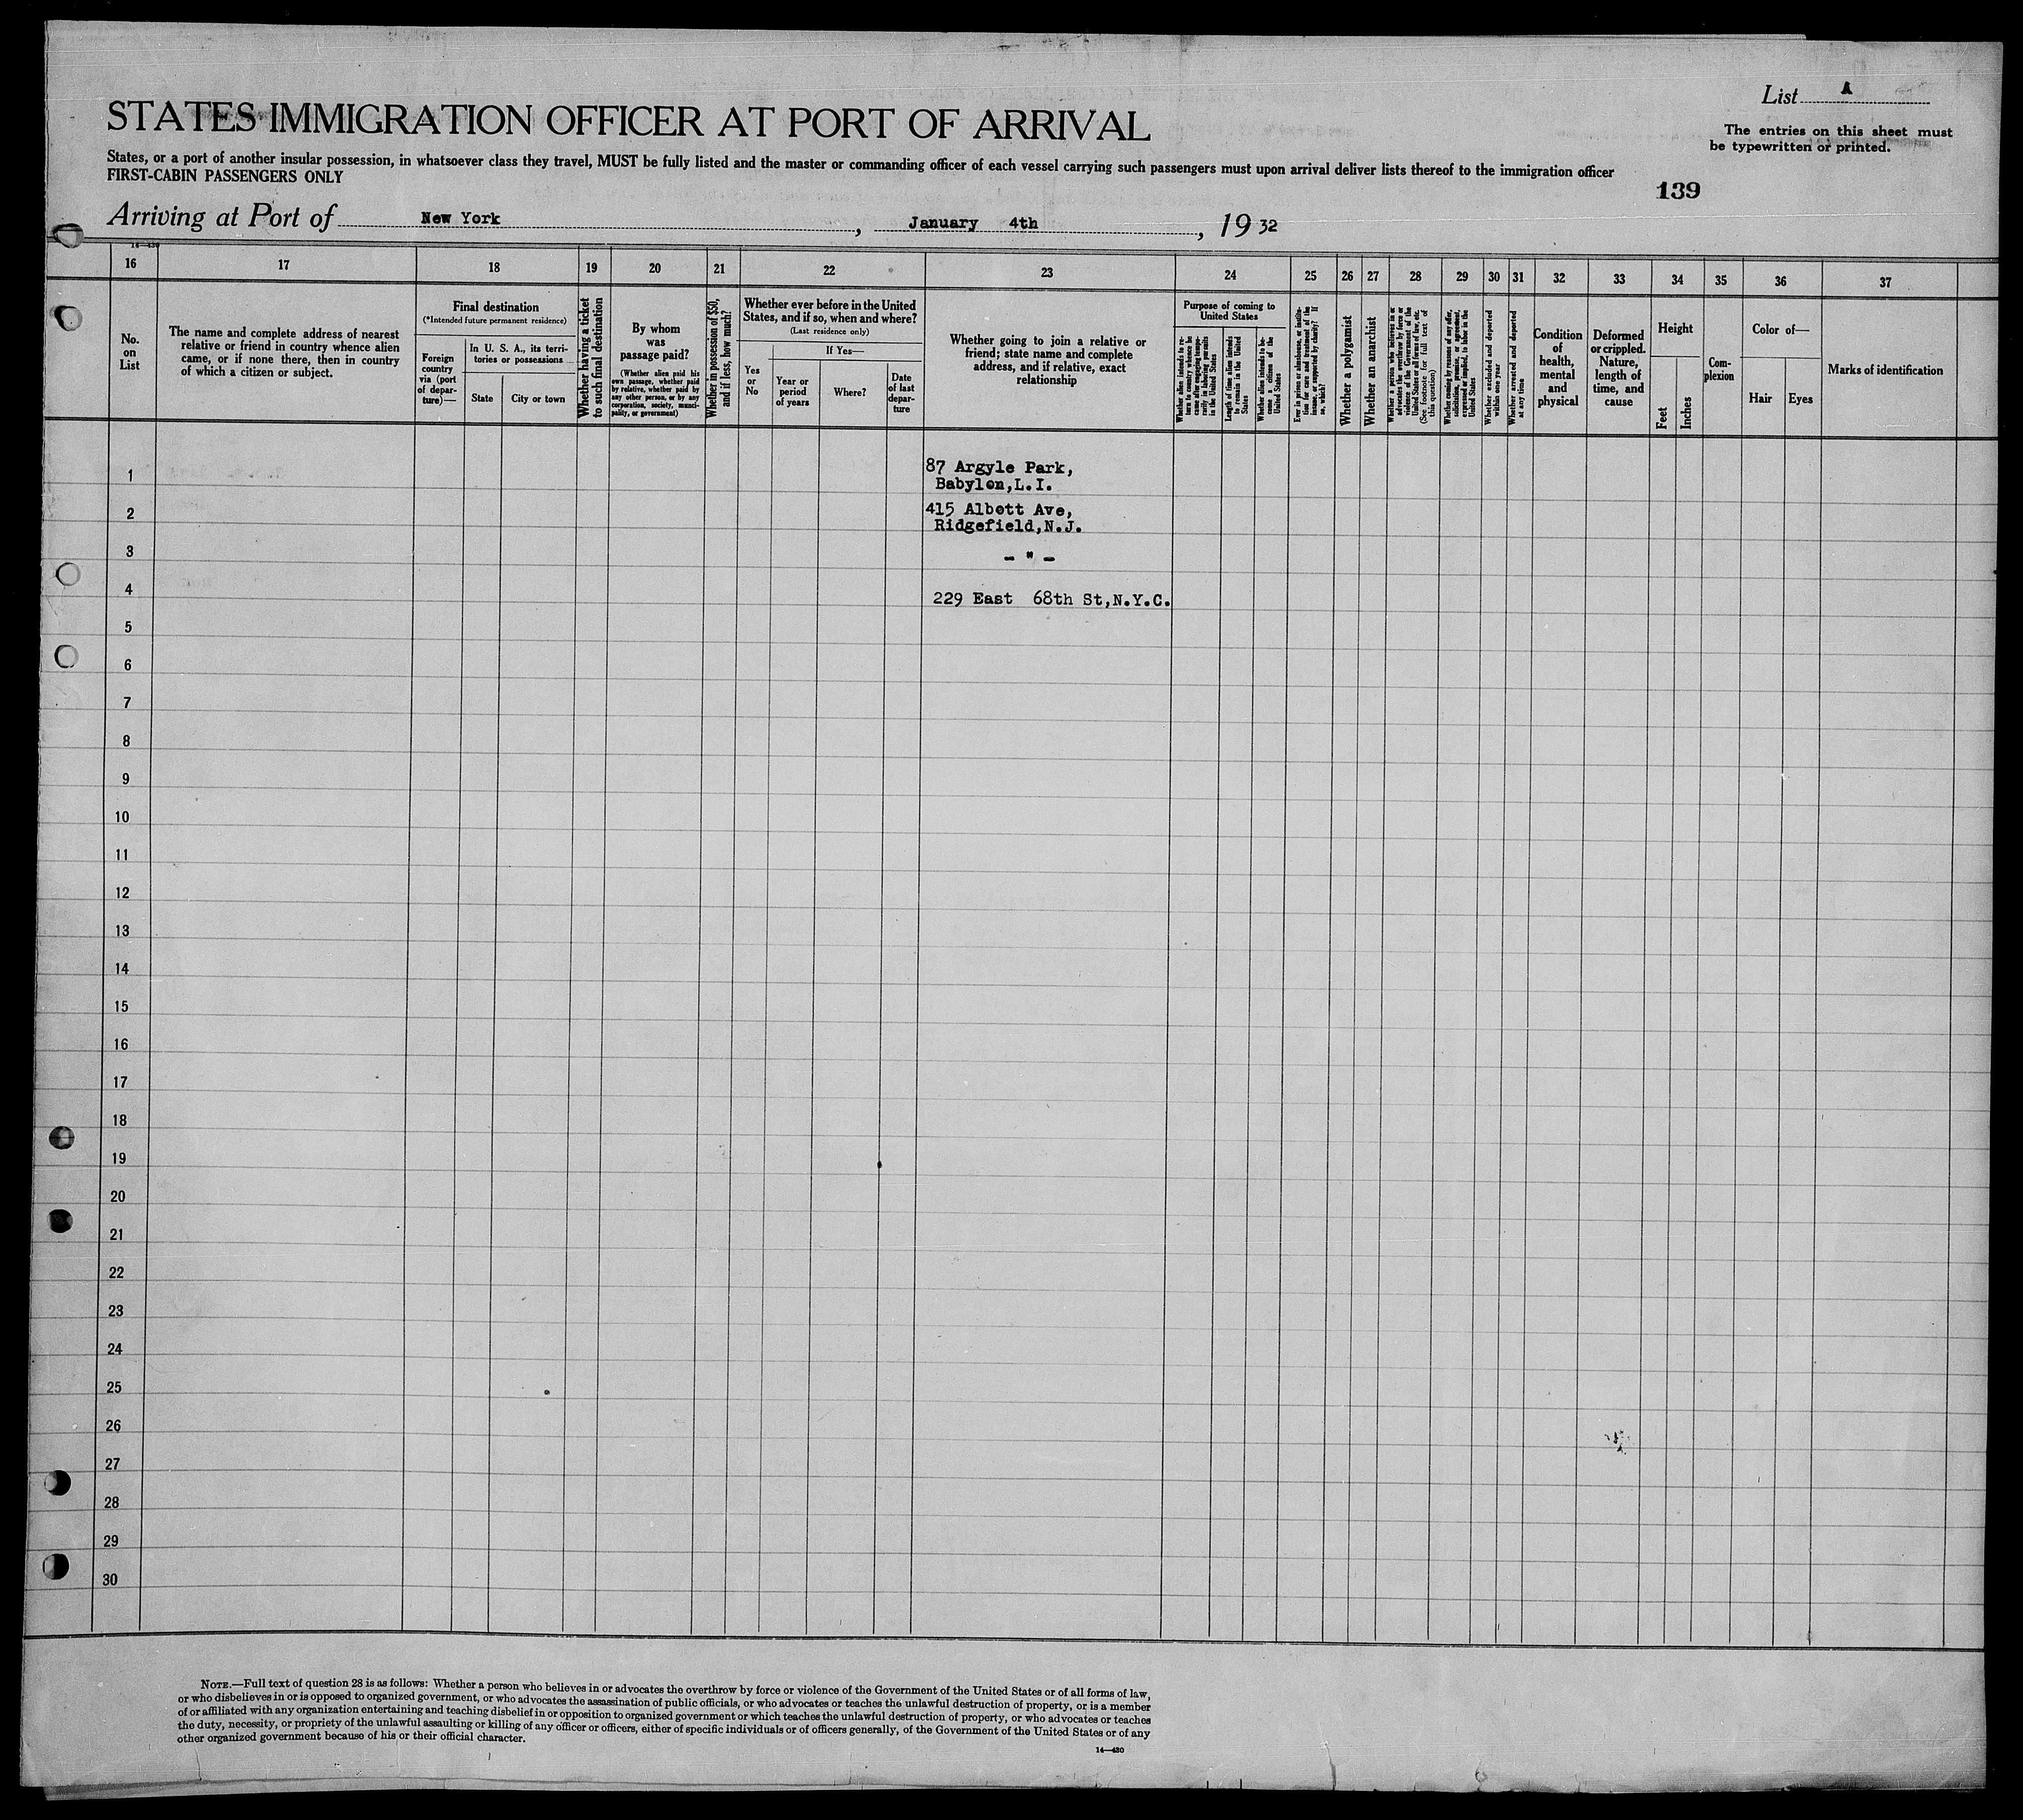 List A
The entries on this sheet must
be typewritten or printed.
STATES IMMIGRATION OFFICER AT PORT OF ARRIVAL
States, or a port of another insular possession, in whatsoever class they travel, MUST be fully listed and the master or commanding officer of each vessel carrying such passengers must upon arrival deliver lists thereof to the immigration officer
FIRST-CABIN PASSENGERS ONLY
139
Arriving at Port of New York, January 4th, 1932
16 17 18 19 20 21 22 23 24 25 26 27 28 29 30 31 32 33 34 35 36 37
No.
on
List
The name and complete address of nearest
relative or friend in country whence alien
came, or if none there, then in country
of which a citizen or subject.
Final destination
(*Intended future permanent residence)
Foreign
country
via (port
of depar-
ture)—
In U. S. A., its terri-
tories or possessions
State
City or town
Whether having a ticket
to such final destination
By whom
was
passage paid?
(Whether alien paid his
own passage, whether paid
by relative, whether paid by
any other person, or by any
corporation, society, munici-
pality, or government)
Whether in possession of $50,
and if less, how much?
Whether ever before in the United
States, and if so, when and where?
(Last residence only)
Yes
or
No
If Yes—
Year or
period
of years
Where?
Date
of last
depar-
ture
Whether going to join a relative or
friend; state name and complete
address, and if relative, exact
relationship
Purpose of coming to
United States
Whether alien intends to re-
turn to country whence he
came after engaging tempo-
rarily in laboring pursuits
in the United States
Length of time alien intends
to remain in the United
States
Whether alien intends to be-
come a citizen of the
United States
Ever in prison or almshouse, or institu-
tion for care and treatment of the
insane, or supported by charity? If
so, which?
Whether a polygamist
Whether an anarchist
Whether a person who believes in or
advocates the overthrow by force or
violence of the Government of the
United States or all forms of law, etc.
(See footnote for full text of
this question)
Whether coming by reasons of any offer,
solicitation, promise, or agreement,
expressed or implied, to labor in the
United States
Whether excluded and deported
within one year
Whether arrested and deported
at any time
Condition
of
health,
mental
and
physical
Deformed
or crippled.
Nature,
length of
time, and
cause
Height
Feet
Inches
Com-
plexion
Color of—
Hair
Eyes
Marks of identification
1 87 Argyle Park,
Babylon,L.I.
2 415 Albett Ave,
Ridgefield,N.J.
3 - " -
4 229 East 68th St,N.Y.C.
5
6
7
8
9
10
11
12
13
14
15
16
17
18
19
20
21
22
23
24
25
26
27
28
29
30
NOTE.—Full text of question 28 is as follows: Whether a person who believes in or advocates the overthrow by force or violence of the Government of the United States or of all forms of law,
or who disbelieves in or is opposed to organized government, or who advocates the assassination of public officials, or who advocates or teaches the unlawful destruction of property, or is a member
of or affiliated with any organization entertaining and teaching disbelief in or opposition to organized government or which teaches the unlawful destruction of property, or who advocates or teaches
the duty, necessity, or propriety of the unlawful assaulting or killing of any officer or officers, either of specific individuals or of officers generally, of the Government of the United States or of any
other organized government because of his or their official character.
14—430